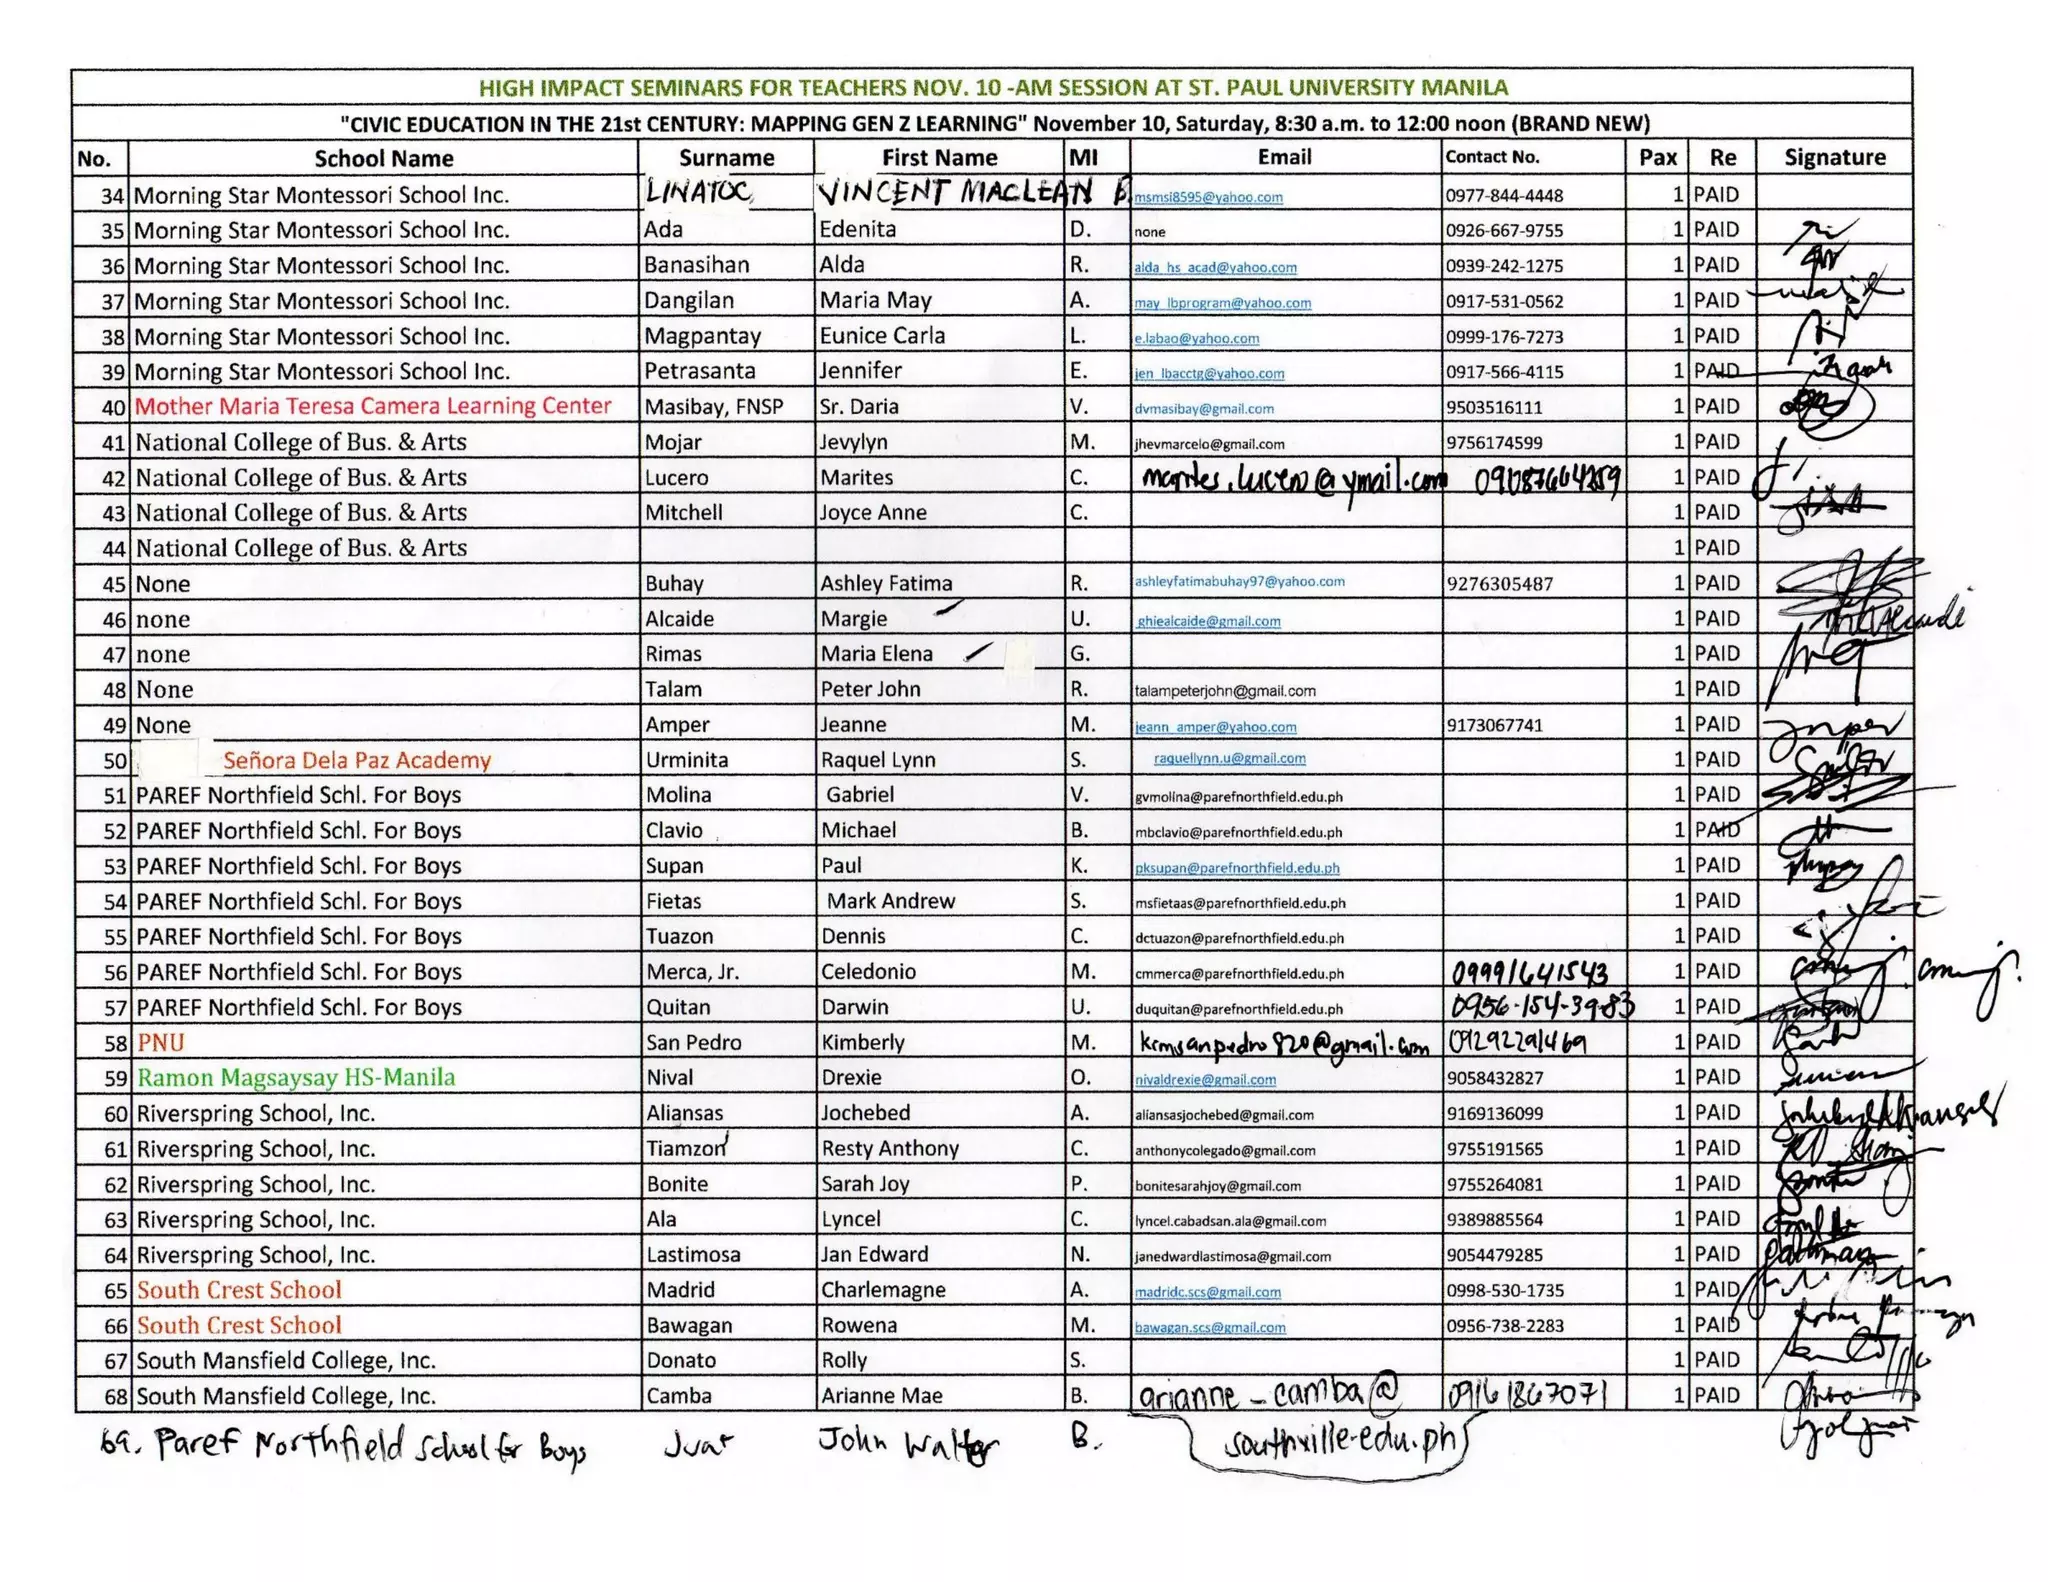 HIGH IMPACT SEMINARS FOR TEACHERS NOV. 10 -AM SESSION AT ST. PAUL UNIVERSITY MANILA
"CIVIC EDUCATION IN THE 21st CENTURY: MAPPING GEN Z LEARNING" November 10, Saturday, 8:30 a.m. to 12:00 noon (BRAND NEW)
No. School Name Surname First Name MI Email Contact No. Pax Re Signature
34 Morning Star Montessori School Inc. LINATOC VINCENT MACLEAN B. msmsi8595@yahoo.com 0977-844-4448 1 PAID
35 Morning Star Montessori School Inc. Ada Edenita D. none 0926-667-9755 1 PAID
36 Morning Star Montessori School Inc. Banasihan Alda R. alda_hs_acad@yahoo.com 0939-242-1275 1 PAID
37 Morning Star Montessori School Inc. Dangilan Maria May A. may_lbprogram@yahoo.com 0917-531-0562 1 PAID
38 Morning Star Montessori School Inc. Magpantay Eunice Carla L. e.labao@yahoo.com 0999-176-7273 1 PAID
39 Morning Star Montessori School Inc. Petrasanta Jennifer E. jen_lbacctg@yahoo.com 0917-566-4115 1 PAID
40 Mother Maria Teresa Camera Learning Center Masibay, FNSP Sr. Daria V. dvmasibay@gmail.com 9503516111 1 PAID
41 National College of Bus. & Arts Mojar Jevylyn M. jhevmarcelo@gmail.com 9756174599 1 PAID
42 National College of Bus. & Arts Lucero Marites C. marites.lucero@ymail.com 09087664259 1 PAID
43 National College of Bus. & Arts Mitchell Joyce Anne C. 1 PAID
44 National College of Bus. & Arts 1 PAID
45 None Buhay Ashley Fatima R. ashleyfatimabuhay97@yahoo.com 9276305487 1 PAID
46 none Alcaide Margie U. ghiealcaide@gmail.com 1 PAID
47 none Rimas Maria Elena G. 1 PAID
48 None Talam Peter John R. talampeterjohn@gmail.com 1 PAID
49 None Amper Jeanne M. jeann_amper@yahoo.com 9173067741 1 PAID
50 Señora Dela Paz Academy Urminita Raquel Lynn S. raquellynn.u@gmail.com 1 PAID
51 PAREF Northfield Schl. For Boys Molina Gabriel V. gvmolina@parefnorthfield.edu.ph 1 PAID
52 PAREF Northfield Schl. For Boys Clavio Michael B. mbclavio@parefnorthfield.edu.ph 1 PAID
53 PAREF Northfield Schl. For Boys Supan Paul K. pksupan@parefnorthfield.edu.ph 1 PAID
54 PAREF Northfield Schl. For Boys Fietas Mark Andrew S. msfietaas@parefnorthfield.edu.ph 1 PAID
55 PAREF Northfield Schl. For Boys Tuazon Dennis C. dctuazon@parefnorthfield.edu.ph 1 PAID
56 PAREF Northfield Schl. For Boys Merca, Jr. Celedonio M. cmmerca@parefnorthfield.edu.ph 09991641543 1 PAID
57 PAREF Northfield Schl. For Boys Quitan Darwin U. duquitan@parefnorthfield.edu.ph 0956-154-3983 1 PAID
58 PNU San Pedro Kimberly M. kcmsanpedro820@gmail.com 09292291469 1 PAID
59 Ramon Magsaysay HS-Manila Nival Drexie O. nivaldrexie@gmail.com 9058432827 1 PAID
60 Riverspring School, Inc. Aliansas Jochebed A. aliansasjochebed@gmail.com 9169136099 1 PAID
61 Riverspring School, Inc. Tiamzon Resty Anthony C. anthonycolegado@gmail.com 9755191565 1 PAID
62 Riverspring School, Inc. Bonite Sarah Joy P. bonitesarahjoy@gmail.com 9755264081 1 PAID
63 Riverspring School, Inc. Ala Lyncel C. lyncel.cabadsan.ala@gmail.com 9389885564 1 PAID
64 Riverspring School, Inc. Lastimosa Jan Edward N. janedwardlastimosa@gmail.com 9054479285 1 PAID
65 South Crest School Madrid Charlemagne A. madridc.scs@gmail.com 0998-530-1735 1 PAID
66 South Crest School Bawagan Rowena M. bawagan.scs@gmail.com 0956-738-2283 1 PAID
67 South Mansfield College, Inc. Donato Rolly S. 1 PAID
68 South Mansfield College, Inc. Camba Arianne Mae B. arianne_camba@ 09161867071 1 PAID
69. Paref Northfield School for Boys Juat John Walter B. southville.edu.ph